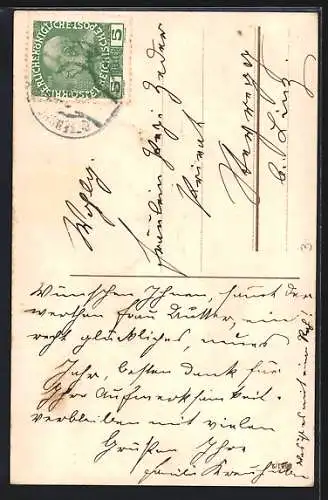 KAISERLICHE KÖNIGLICHE ÖSTERREICHISCHE POST
5 HELLER 5
Wohlg.
Fräulein Pepi Zeder
Privat
Steyregg
b. Linz.
Wünschen Ihnen, samt der
werthen Frau Mutter, ein
recht glückliches, neues
Jahr, besten Dank für
Ihre Aufmerksamkeit.
verbleiben mit vielen
Grüßen Ihre
Familie
3